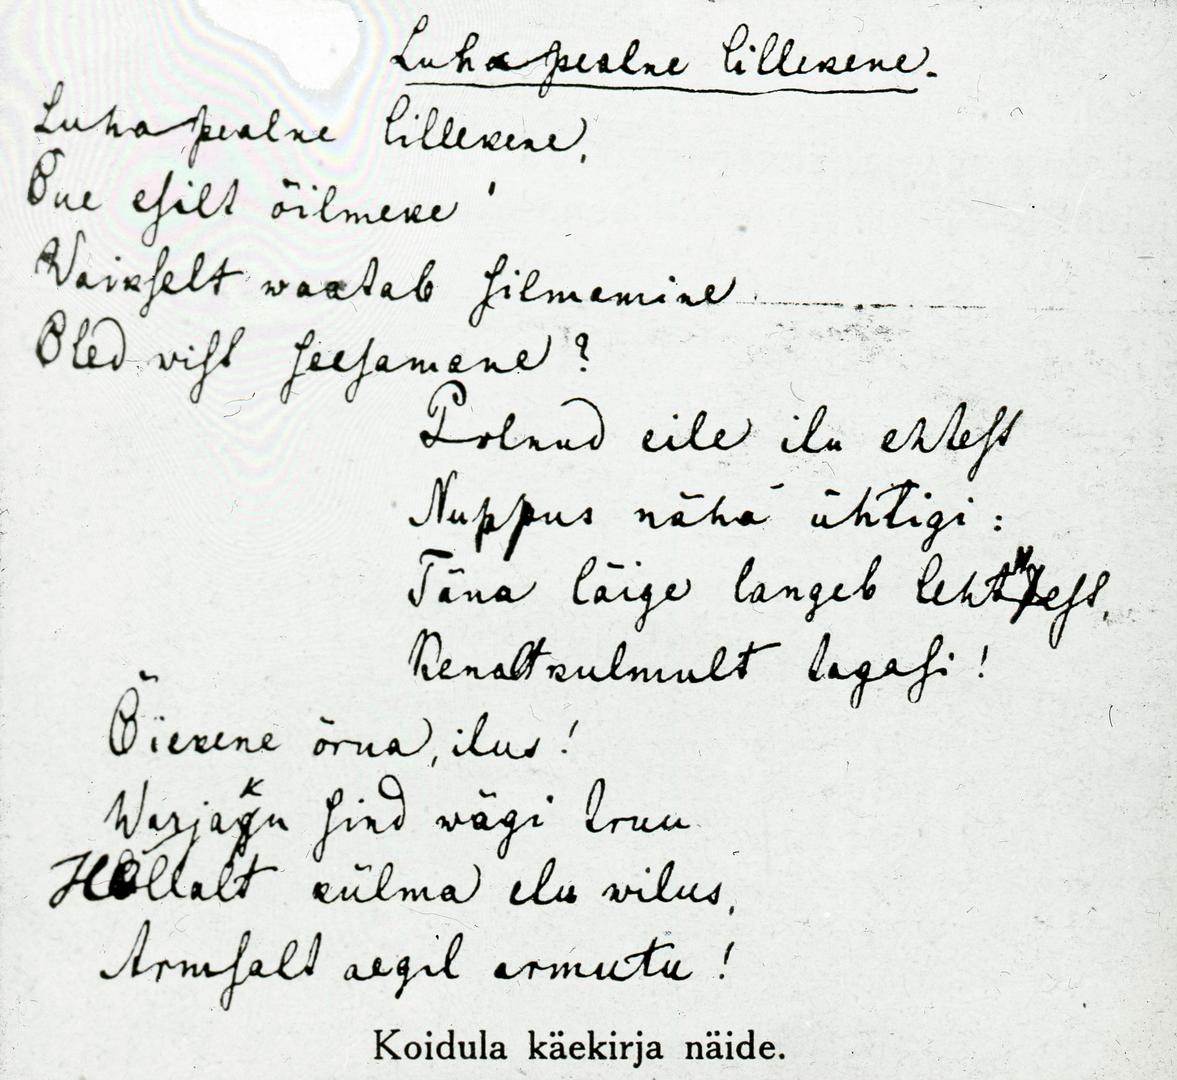 Luha pealne lillekene.
Luha pealne lillekene,
Õue eſilt õilmeke
Waikſelt waatab ſilmamine
Oled wiſt ſeeſamane?
Polnud eile ilu ehteſt
Nuppus näha ühtigi:
Täna läige langeb lehteſt,
Kenalt kulmult tagaſi!
Õiekene õrna, ilus!
Warjaku ſind wägi truu
Hõllalt külma elu wilus,
Armſalt aegil armutu!
Koidula käekirja näide.